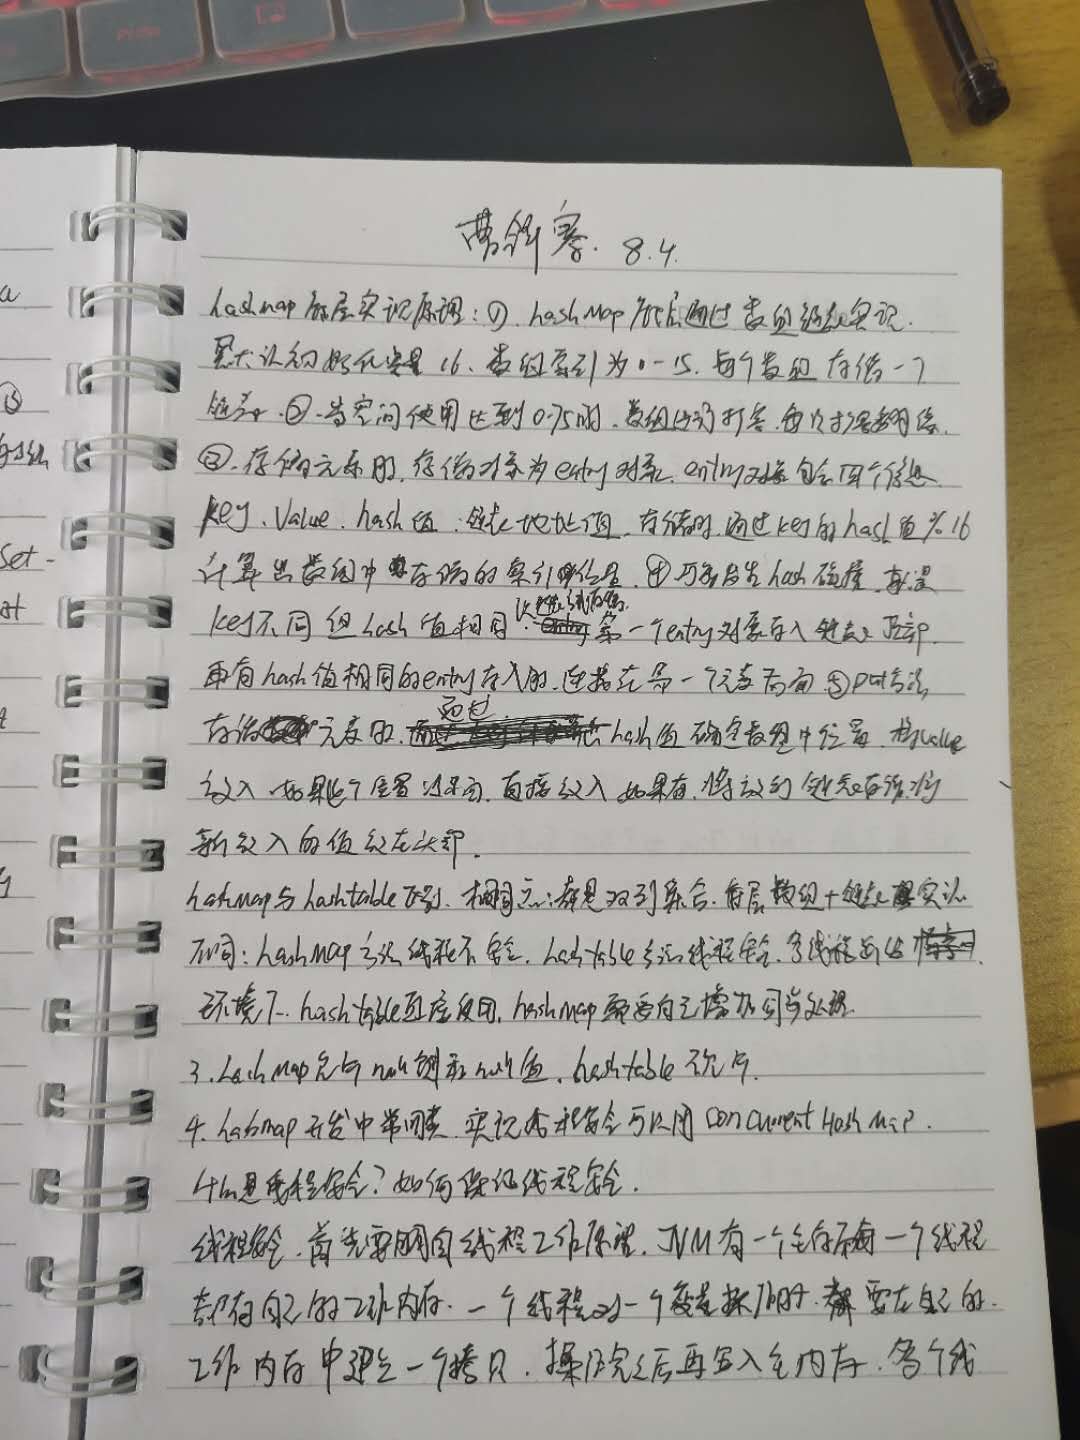 8.4.
hashmap底层实现原理:①. hashMap底层通过数组链表实现.
默认初始化容量16. 数组索引为0-15. 每个数组存储一个
链表.②.当空间使用达到0.75时.数组进行扩容.每次扩容两倍.
③.存储元素时.存储对象为entry对象. entry对象包含四个信息
key、Value、hash值.链表地址值.存储时.通过key的hash值%16
计算出数组中存储的索引位置.④可能发生hash碰撞.就是
key不同但hash值相同.以链式存储.第一个entry对象存入链表尾部.
再有hash值相同的entry存入时.连接在另一个元素后面⑤put方法
存储元素时.通过hash值确定数组中位置.将value
放入.如果这个位置为空.直接放入如果有.将 链表存储.将
新放入的值放在头部.
hashMap与hashtable区别.相同点:都是双列集合.底层数组+链表实现
不同:hashMap方法线程不安全.hashtable方法线程安全.多线程并发
环境下.hashtable直接使用.hashMap需要自己增加同步处理.
3.hashMap允许null键和null值.hashtable不允许.
4.hashmap开发中常用类.实现线程安全可以用ConCurrentHashMap.
什么是线程安全?如何保证线程安全.
线程安全.首先要明白线程工作原理.JVM有一个主存而每一个线程
都有自己的工作内存.一个线程对一个变量操作时.都要在自己的.
工作内存中建立一个拷贝.操作完之后再写入主内存.多个线
a
③
Set-